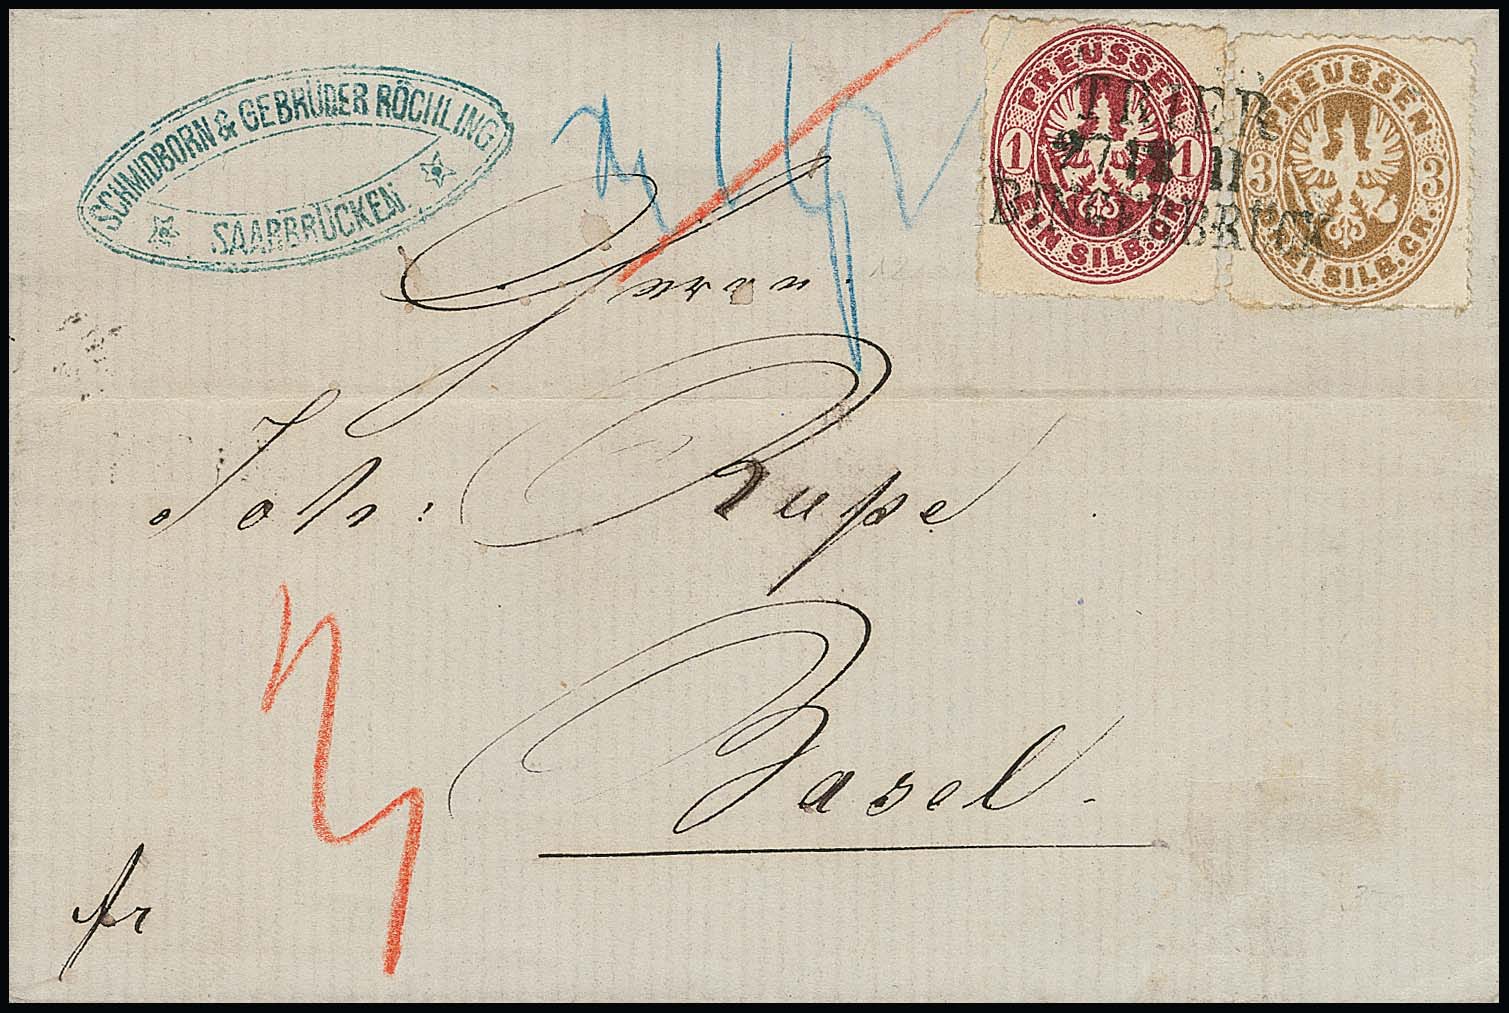 SCHMIDBORN & GEBRÜDER RÖCHLING
SAARBRÜCKEN.
PREUSSEN
1 1
EIN SILB.GR.
PREUSSEN
3 3
DREI SILB.GR.
TRIER
27 12 II
Herrn
Joh: Rupe
Basel.
fr